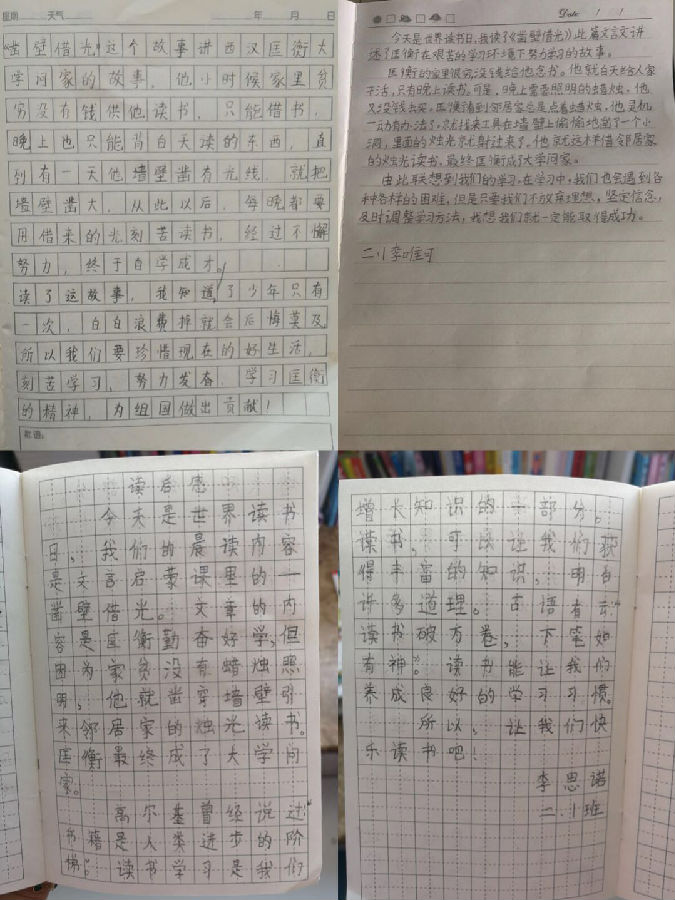 星期 天气 年 月 日
"凿壁借光"这个故事讲西汉匡衡大
学问家的故事，他小时候家里贫
穷没有钱供他读书，只能借书，
晚上也只能背白天读的东西，直
到有一天他墙壁凿有光线，就把
墙壁凿大，从此以后，每晚都要
用借来的光刻苦读书，经过不懈
努力，终于自学成才。
读了这故事，我知道了少年只有
一次，白白浪费掉就会后悔莫及，
所以我们要珍惜现在的好生活，
刻苦学习，努力发奋，学习匡衡
的精神，为组国做出贡献！
Date / /
今天是世界读书日，我读了《凿壁借光》此篇文言文讲
述了匡衡在艰苦的学习环境下努力学习的故事。
匡衡的家里很穷没钱给他念书。他就白天给人家
干活，只有晚上读书。可是，晚上需要照明的蜡烛，他
又没钱去买。匡衡看到邻居家总是点着蜡烛，他灵机
一动有办法了，就找来工具在墙壁上偷偷地凿了一个小
洞，里面的烛光就射过来了，他就这样借邻居家
的烛光读书，最终匡衡成了大学问家。
由此联想到我们的学习，在学习中，我们也会遇到各
种各样的困难，但是只要我们不放弃理想，坚定信念，
及时调整学习方法，我想我们就一定能取得成功。
二.1 李唯可
读后感
今天是世界读书
日，我们的晨读内容
是文言启蒙课里的一
凿壁借光。文章的内
容是匡衡勤奋好学，但
因为家贫没有蜡烛照
明，他就凿穿墙壁引
来邻居家的烛光读书。
匡衡最终成了大学问
家。
高尔基曾经说过："
书籍是人类进步的阶
梯"。读书学习是我们
增长知识的一部分。
读书，可以让我们获
得丰富的知识，明白
许多道理。古语有云："
读书破万卷，下笔如
有神"。读书能让我们
养成良好的学习习惯。
所以，让我们快
乐读书吧！
李思诺
二.1班